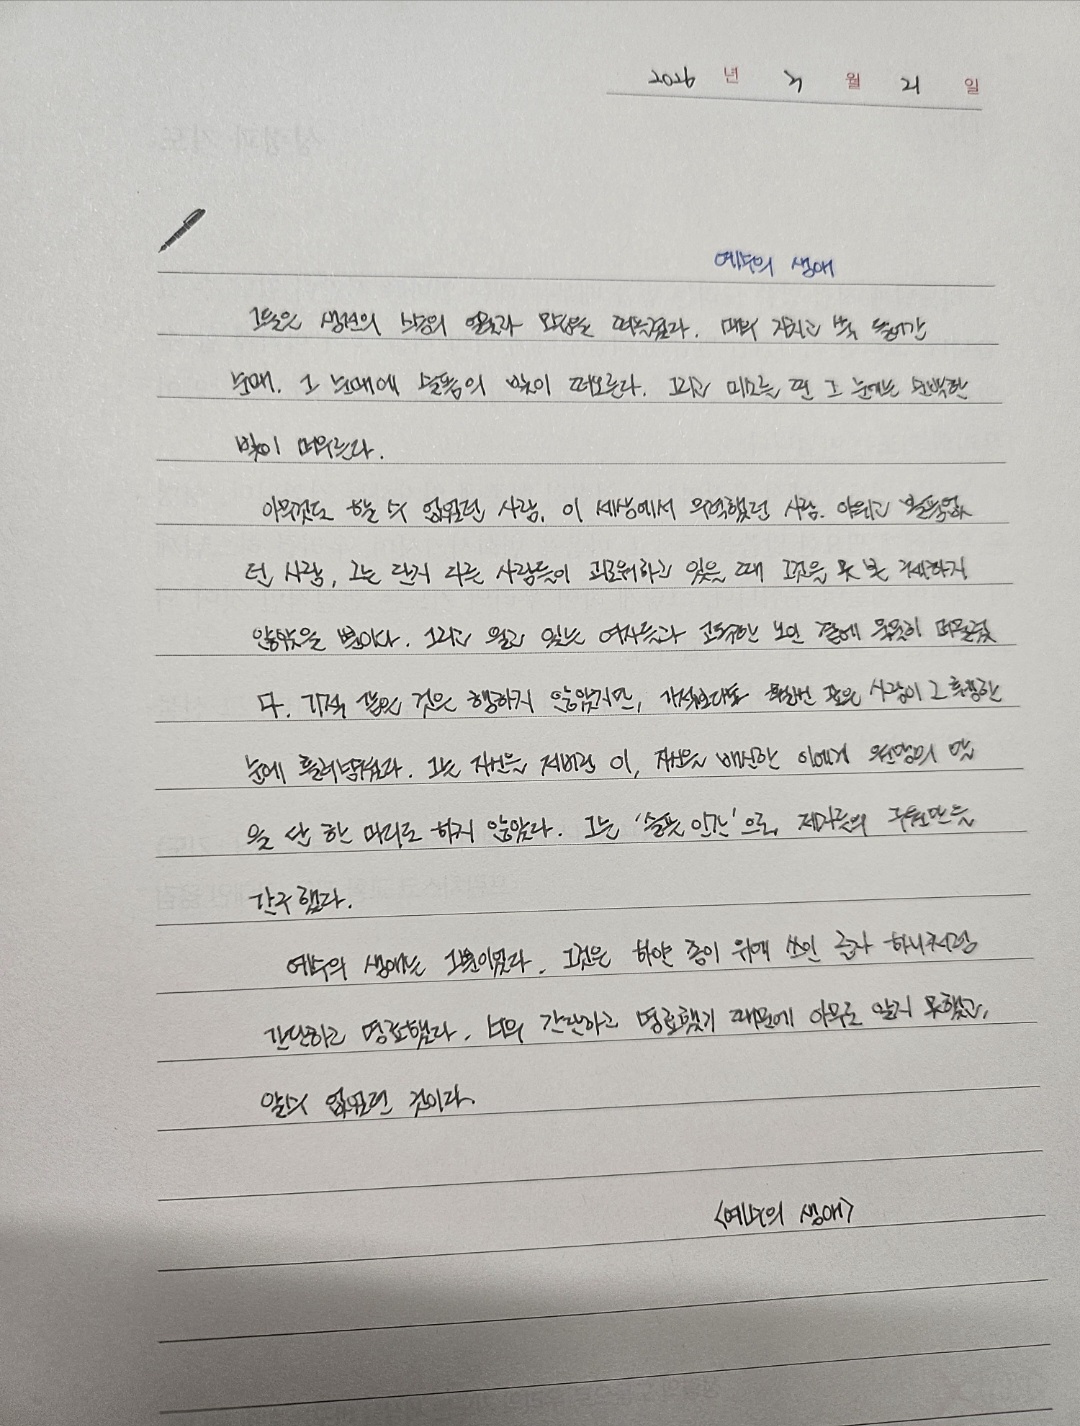 2026 년 3 월 21 일
예수의 생애
그들은 생전의 스승의 얼굴과 모습을 떠올렸다. 매우 지치고 쑥 들어간
눈매. 그 눈매에 슬픔의 빛이 떠오른다. 그리고 미소 띤 그 눈에는 순박한
빛이 떠오른다.
아무것도 할 수 없었던 사람, 이 세상에서 무력했던 사람. 야위고 볼품없었
던 사람, 그는 단지 다른 사람들이 괴로워하고 있을 때 그것을 못 본 체하지
않았을 뿐이다. 그리고 울고 있는 여자들과 고독한 노인 곁에 묵묵히 머물렀
다. 기적 같은 것은 행하지 않았지만, 기적보다도 훨씬 깊은 사랑이 그 퀭한
눈에 흘러넘쳤다. 그는 자신을 저버린 이, 자신을 배신한 이에게 원망의 말
을 단 한 마디도 하지 않았다. 그는 '슬픈 인간'으로, 제자들의 구원만을
간구했다.
예수의 생애는 그뿐이었다. 그것은 하얀 종이 위에 쓰인 글자 하나처럼
간단하고 명료했다. 너무 간단하고 명료했기 때문에 아무도 알지 못했고,
알 수 없었던 것이다.
<예수의 생애>